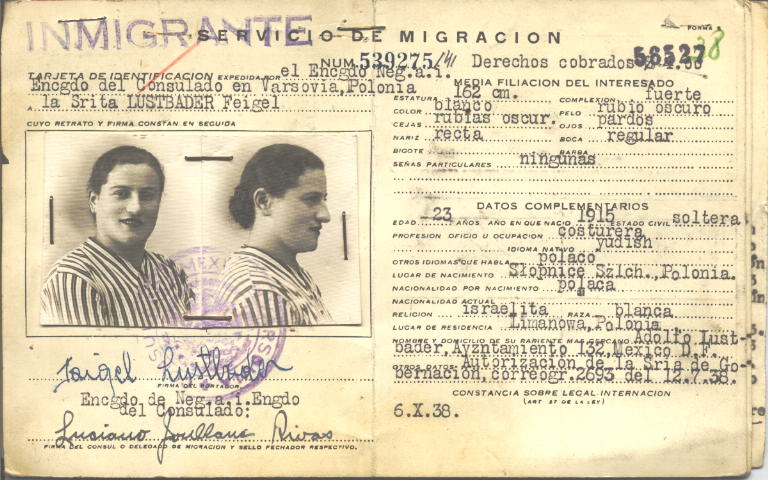 INMIGRANTE
SERVICIO DE MIGRACION
FORMA
NUM. 539275/41
TARJETA DE IDENTIFICACION EXPEDIDA POR el Encgdo Neg.a.i.
Encgdo del Consulado en Varsovia,Polonia
A la Srita LUSTBADER Feigel
CUYO RETRATO Y FIRMA CONSTAN EN SEGUIDA
Feigel Lustbader
FIRMA DEL PORTADOR
Encgdo de Neg.a.i.Engdo
del Consulado:
Luciano Joublanc Rivas
FIRMA DEL CONSUL O DELEGADO DE MIGRACION Y SELLO FECHADOR RESPECTIVO.
Derechos cobrados
MEDIA FILIACION DEL INTERESADO
ESTATURA 162 cm. COMPLEXION fuerte
COLOR blanco PELO rubio oscuro
CEJAS rubias oscur. OJOS pardos
NARIZ recta BOCA regular
BIGOTE BARBA
SEÑAS PARTICULARES ningunas
DATOS COMPLEMENTARIOS
EDAD 23 AÑOS AÑO EN QUE NACIO 1915 ESTADO CIVIL soltera
PROFESION OFICIO U OCUPACION costurera
IDIOMA NATIVO yudish
OTROS IDIOMAS QUE HABLA polaco
LUGAR DE NACIMIENTO Słopnice Szlch.,Polonia.
NACIONALIDAD POR NACIMIENTO polaca
NACIONALIDAD ACTUAL
RELIGION israelita RAZA blanca
LUGAR DE RESIDENCIA Limanowa,Polonia
NOMBRE Y DOMICILIO DE SU PARIENTE MAS CERCANO Adolfo Lust-
bader,Ayzntamiento 132,Mexico D.F.
OTROS DATOS Autorización de la Sria de Go-
bernación,correogr.2693 del 12.7.38.
CONSTANCIA SOBRE LEGAL INTERNACION
(ART 57 DE LA LEY)
6.X.38.